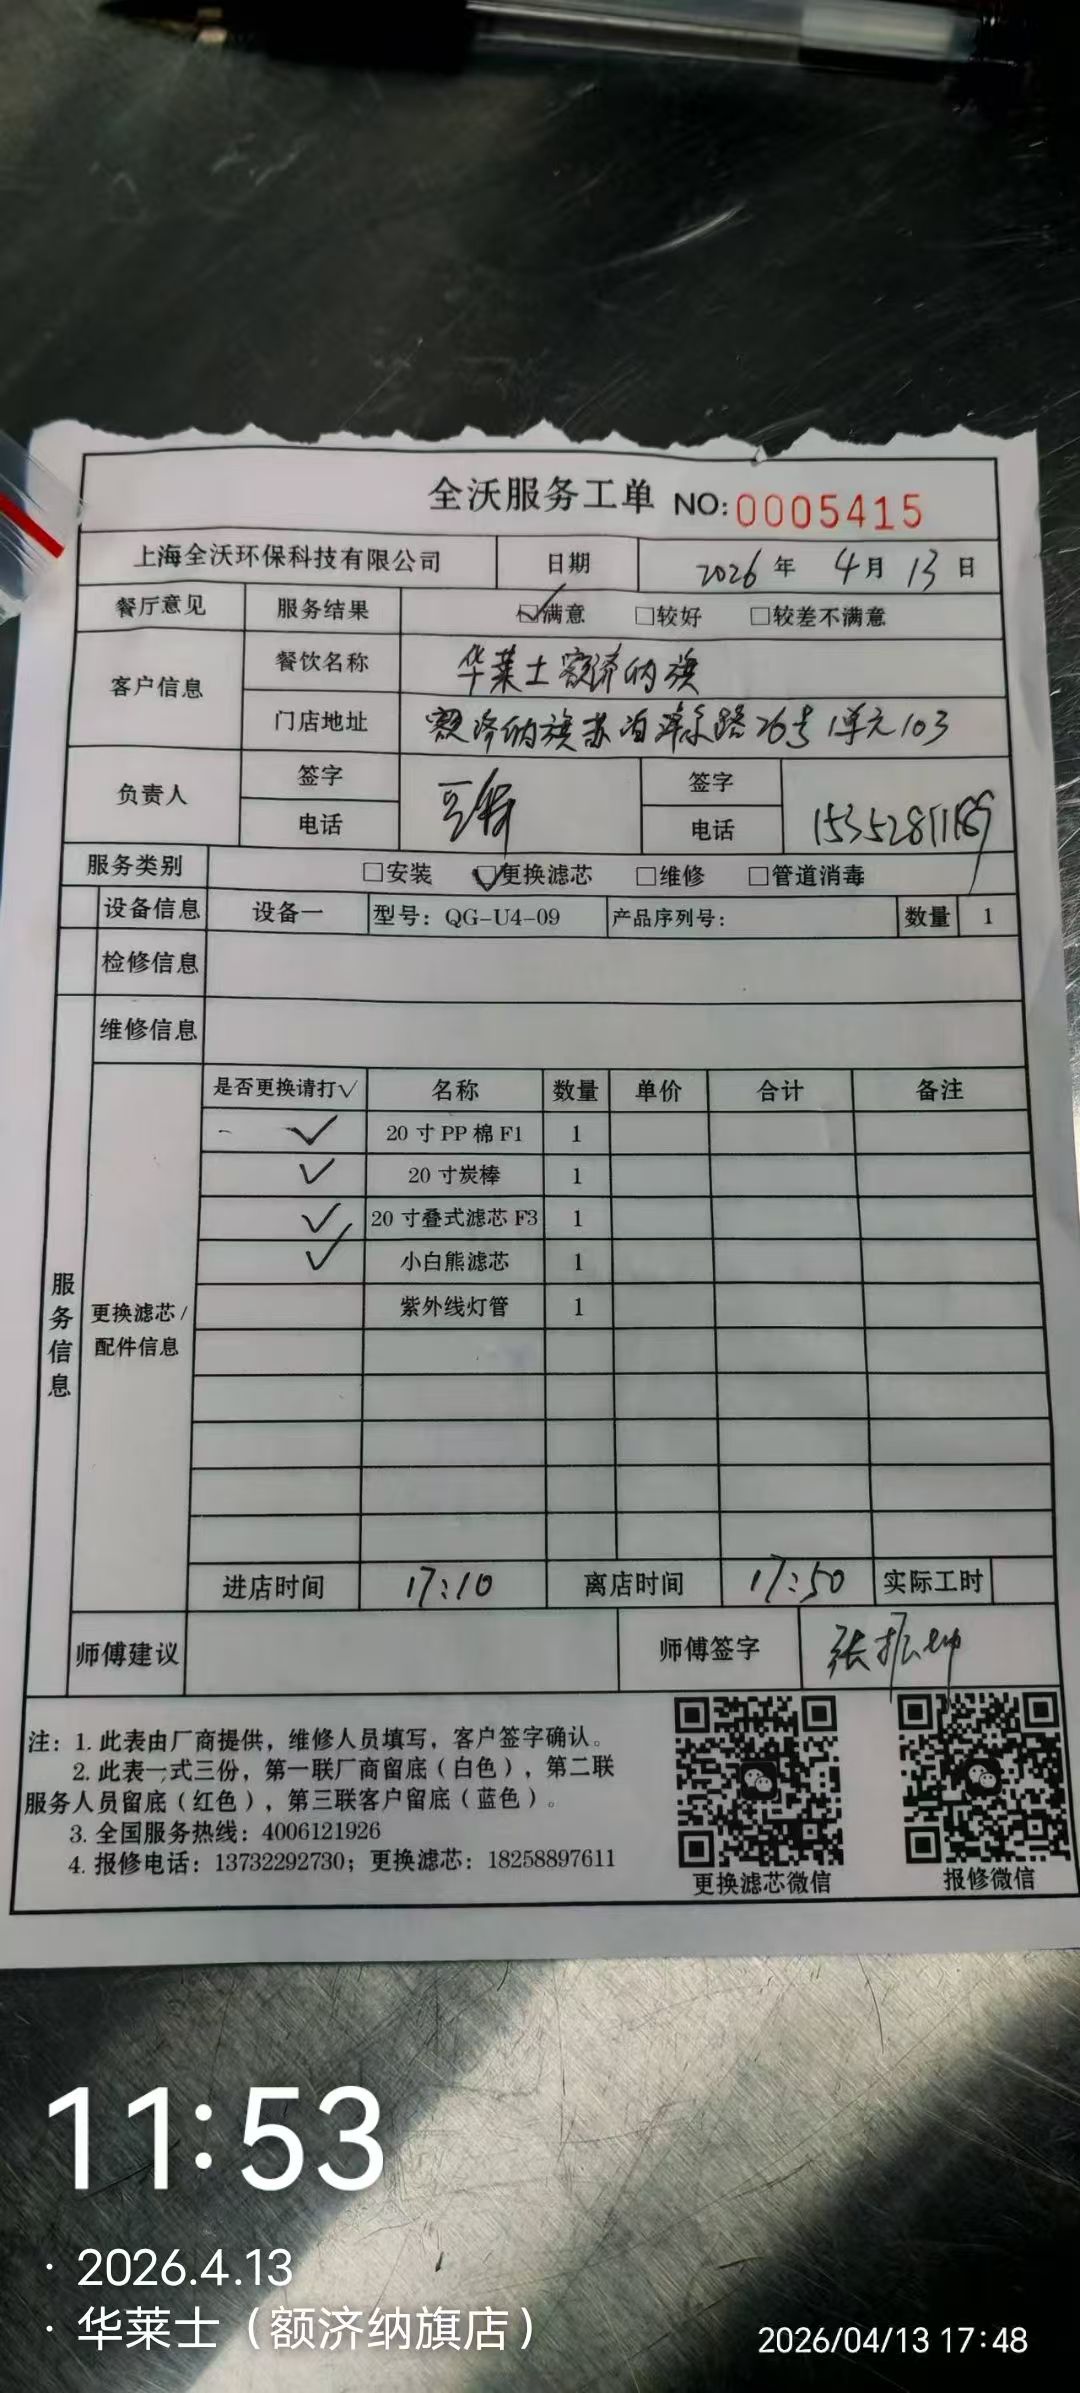 全沃服务工单 NO:0005415
上海全沃环保科技有限公司 日期 2026年4月13日
餐厅意见 服务结果 ☑满意 □较好 □较差不满意
客户信息 餐饮名称 华莱士额济纳旗
门店地址 额济纳旗苏泊淖尔路26号1单元103
负责人 签字 签字
电话 电话 15352811189
服务类别 □安装 ☑更换滤芯 □维修 □管道消毒
设备信息 设备一 型号：QG-U4-09 产品序列号： 数量 1
检修信息
维修信息
服务信息
更换滤芯/
配件信息
是否更换请打√ 名称 数量 单价 合计 备注
✓ 20寸PP棉F1 1
✓ 20寸炭棒 1
✓ 20寸叠式滤芯F3 1
✓ 小白熊滤芯 1
紫外线灯管 1
进店时间 17:10 离店时间 17:50 实际工时
师傅建议 师傅签字 张振坤
注：1. 此表由厂商提供，维修人员填写，客户签字确认。
2. 此表一式三份，第一联厂商留底（白色），第二联
服务人员留底（红色），第三联客户留底（蓝色）。
3. 全国服务热线：4006121926
4. 报修电话：13732292730；更换滤芯：18258897611
更换滤芯微信 报修微信
11:53
· 2026.4.13
· 华莱士（额济纳旗店）
2026/04/13 17:48